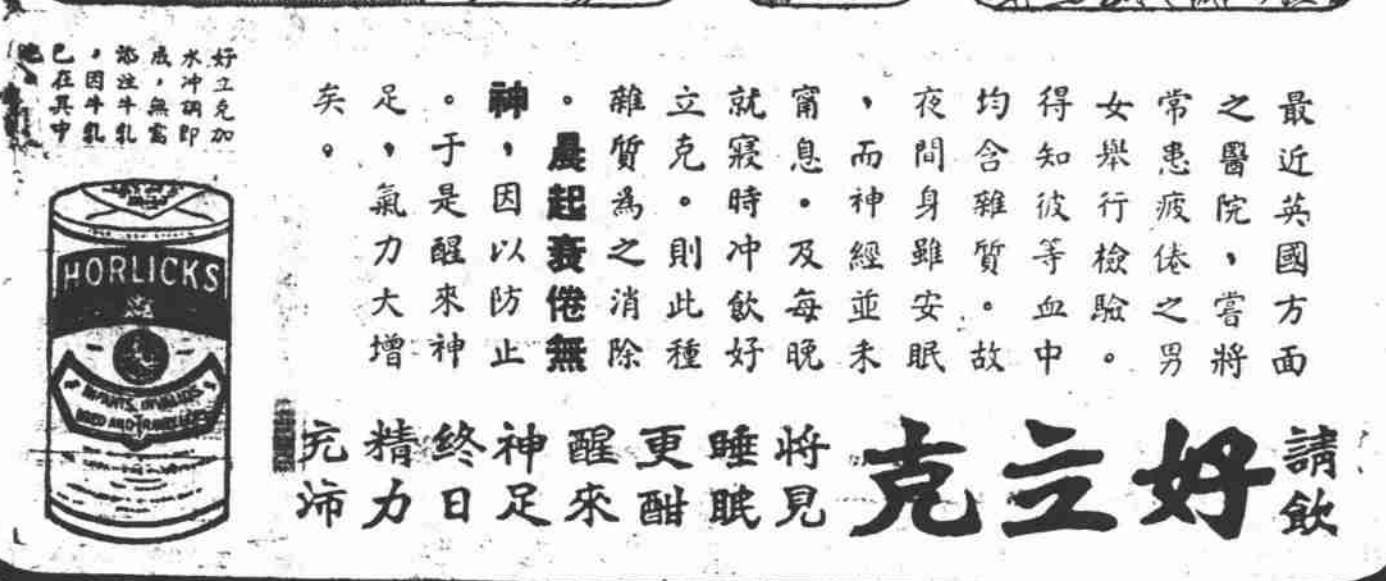 最近英國方面
之醫院，嘗將
常患疲倦之男
女舉行檢驗。
得知彼等血中
均含雜質。故
夜間身雖安眠
，而神經並未
甯息。及每晚
就寢時冲飲好
立克。則此種
雜質為之消除
。晨起衰倦無
神，因以防止
。于是醒來神
足，氣力大增
矣。
請飲
好立克
將見
睡眠
更酣
醒來
神足
終日
精力
充沛
好立克加
水冲調即
成，無需
添注牛乳
，因牛乳
已在其中
HORLICKS
INFANTS, INVALIDS
AGED AND TRAVELLERS